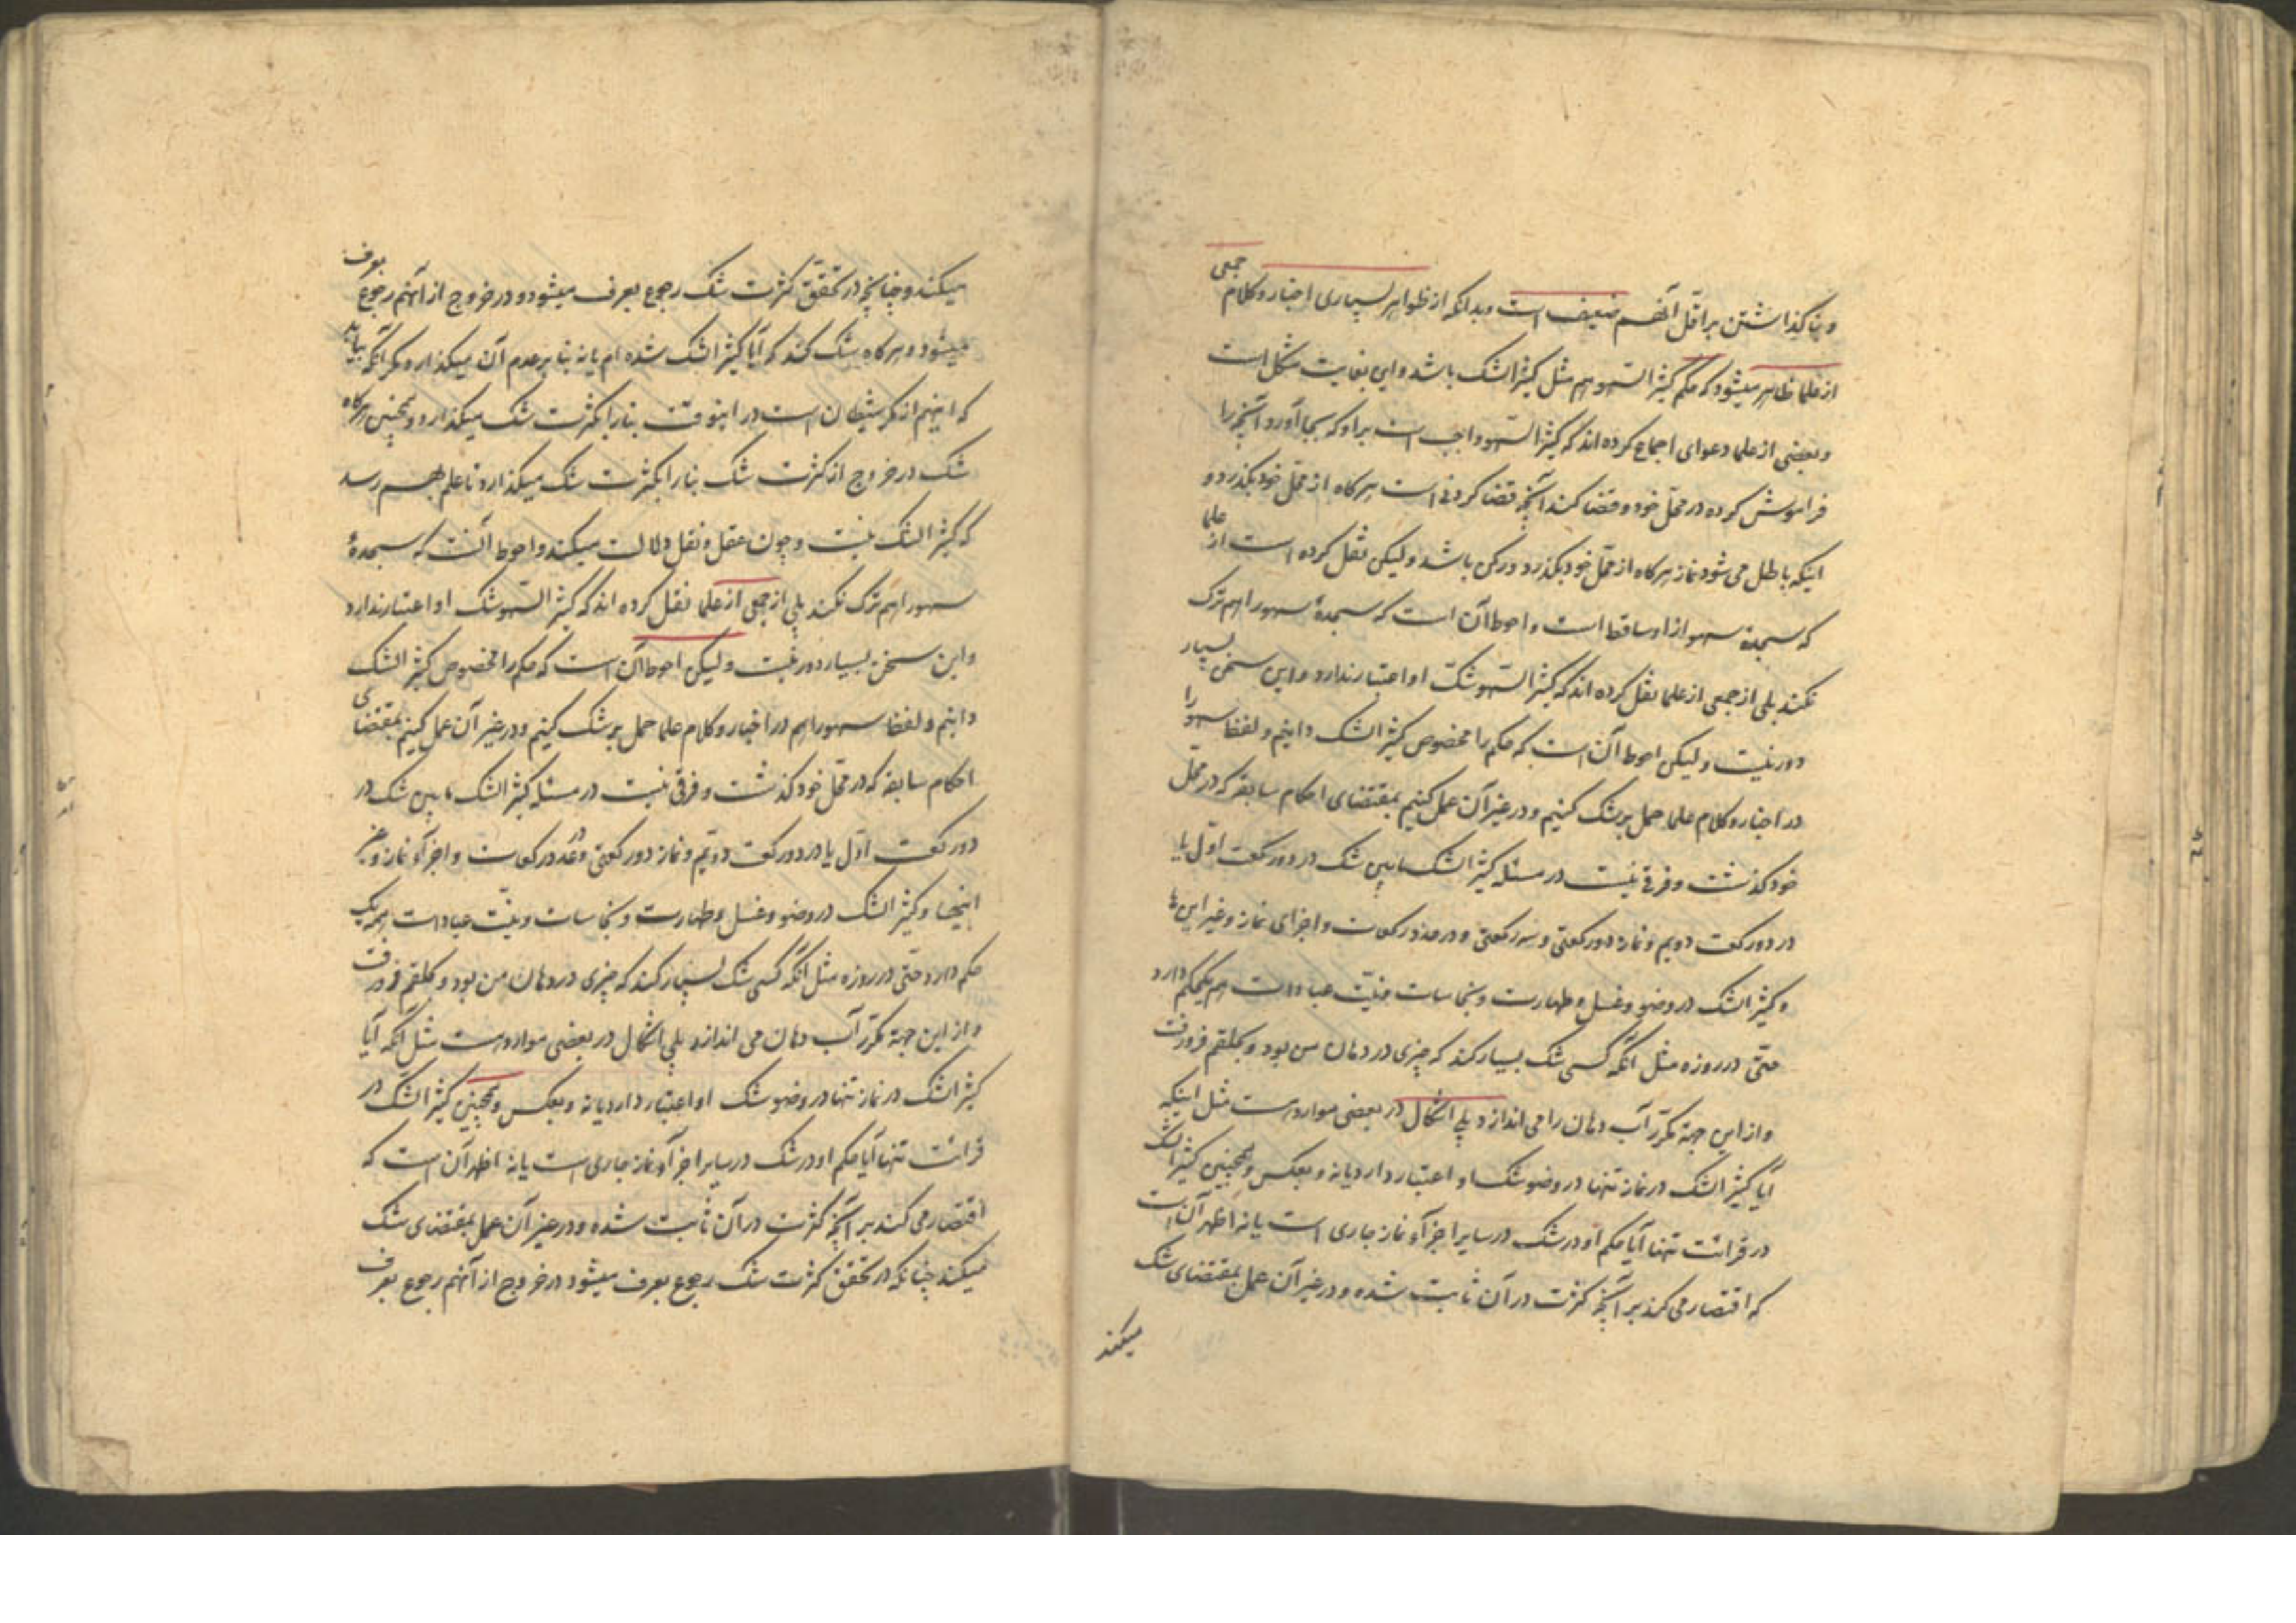 و بنا گذاشتن بر اقل آنهم ضعیف است و بدانکه از ظواهر بسیاری اخبار و کلام جمعی
از علما ظاهر میشود که حکم کثیر السهو هم مثل کثیر الشک باشد و این بغایت مشکل است
و بعضی از علما دعوای اجماع کرده اند که کثیر السهو واجب است بر او که بجا آورد آنچه را
فراموش کرده در محل خود و قضا کند آنچه قضا کردنی است هرگاه از محل خود بگذرد و
اینکه باطل می شود نماز هرگاه از محل خود بگذرد و رکن باشد و لیکن نقل کرده است از علما
که سجده سهو از او ساقط است و احوط آن است که سجدهٔ سهو را هم ترک
نکند بلی از جمعی از علما نقل کرده اند که کثیر السهو شک او اعتبار ندارد و این سخن بسیار
دور نیست و لیکن احوط آن است که حکم را مخصوص کثیر الشک دانیم و لفظ سهو را
در اخبار و کلام علما حمل بر شک کنیم و در غیر آن عمل کنیم بمقتضای احکام سابقه که در محل
خود گذشت و فرقی نیست در مسئله کثیر الشک مابین شک در دو رکعت اول یا
در دو رکعت دویم و نماز دو رکعتی و سه رکعتی و در عدد رکعات و اجزای نماز و غیر این ها
و کثیر الشک در وضو و غسل و طهارت و نجاسات و نیت عبادات هم یکحکم دارد
حتی در روزه مثل آنکه کسی شک بسیار کند که چیزی در دهان من بود و بحلقم فرو رفت
و از این جهة مکرر آب دهان را می اندازد بلی اشکال در بعضی موارد هست مثل اینکه
آیا کثیر الشک در نماز تنها در وضو شک او اعتبار دارد یا نه و بعکس و همچنین کثیر الشک
در قرائت تنها آیا حکم او در شک در سایر اجزآء نماز جاری است یا نه اظهر آن است
که اقتصار می کند بر آنچه کثرت در آن ثابت شده و در غیر آن عمل بمقتضای شک
میکند
میکند و چنانچه در تحقق کثرت شک رجوع بعرف میشود و در خروج از آنهم رجوع بعرف
میشود و هرگاه شک کند که آیا کثیر الشک شده ام یا نه بنا بر عدم آن میگذارد مگر آنکه بیابد
که اینهم از مکر شیطان است در اینوقت بنا را بکثرت شک میگذارد و همچنین هرگاه
شک در خروج از کثرت شک بنا را بکثرت شک میگذارد تا علم بهم رسد
که کثیر الشک نیست و چون عقل و نقل دلالت میکند و احوط آنست که سجدهٔ
سهو را هم ترک نکند بلی از جمعی از علما نقل کرده اند که کثیر السهو شک او اعتبار ندارد
و این سخن بسیار دور نیست و لیکن احوط آن است که حکم را مخصوص کثیر الشک
دانیم و لفظ سهو را هم در اخبار و کلام علما حمل بر شک کنیم و در غیر آن عمل کنیم بمقتضای
احکام سابقه که در محل خود گذشت و فرقی نیست در مسئله کثیر الشک مابین شک در
دو رکعت اول یا در دو رکعت دویم و نماز دو رکعتی و در عدد رکعات و اجزآء نماز و غیر
اینها و کثیر الشک در وضو و غسل و طهارت و نجاسات و نیت عبادات همه یک
حکم دارد حتی در روزه مثل آنکه کسی شک بسیار کند که چیزی در دهان من بود و بحلقم فرو رفت
و از این جهة مکرر آب دهان می اندازد بلی اشکال در بعضی موارد هست مثل آنکه آیا
کثیر الشک در نماز تنها در وضو شک او اعتبار دارد یا نه و بعکس و همچنین کثیر الشک در
قرائت تنها آیا حکم او در شک در سایر اجزآء نماز جاری است یا نه اظهر آن است که
اقتصار می کند بر آنچه کثرت در آن ثابت شده و در غیر آن عمل بمقتضای شک
میکند چنانکه در تحقق کثرت شک رجوع بعرف میشود در خروج از آنهم رجوع بعرف